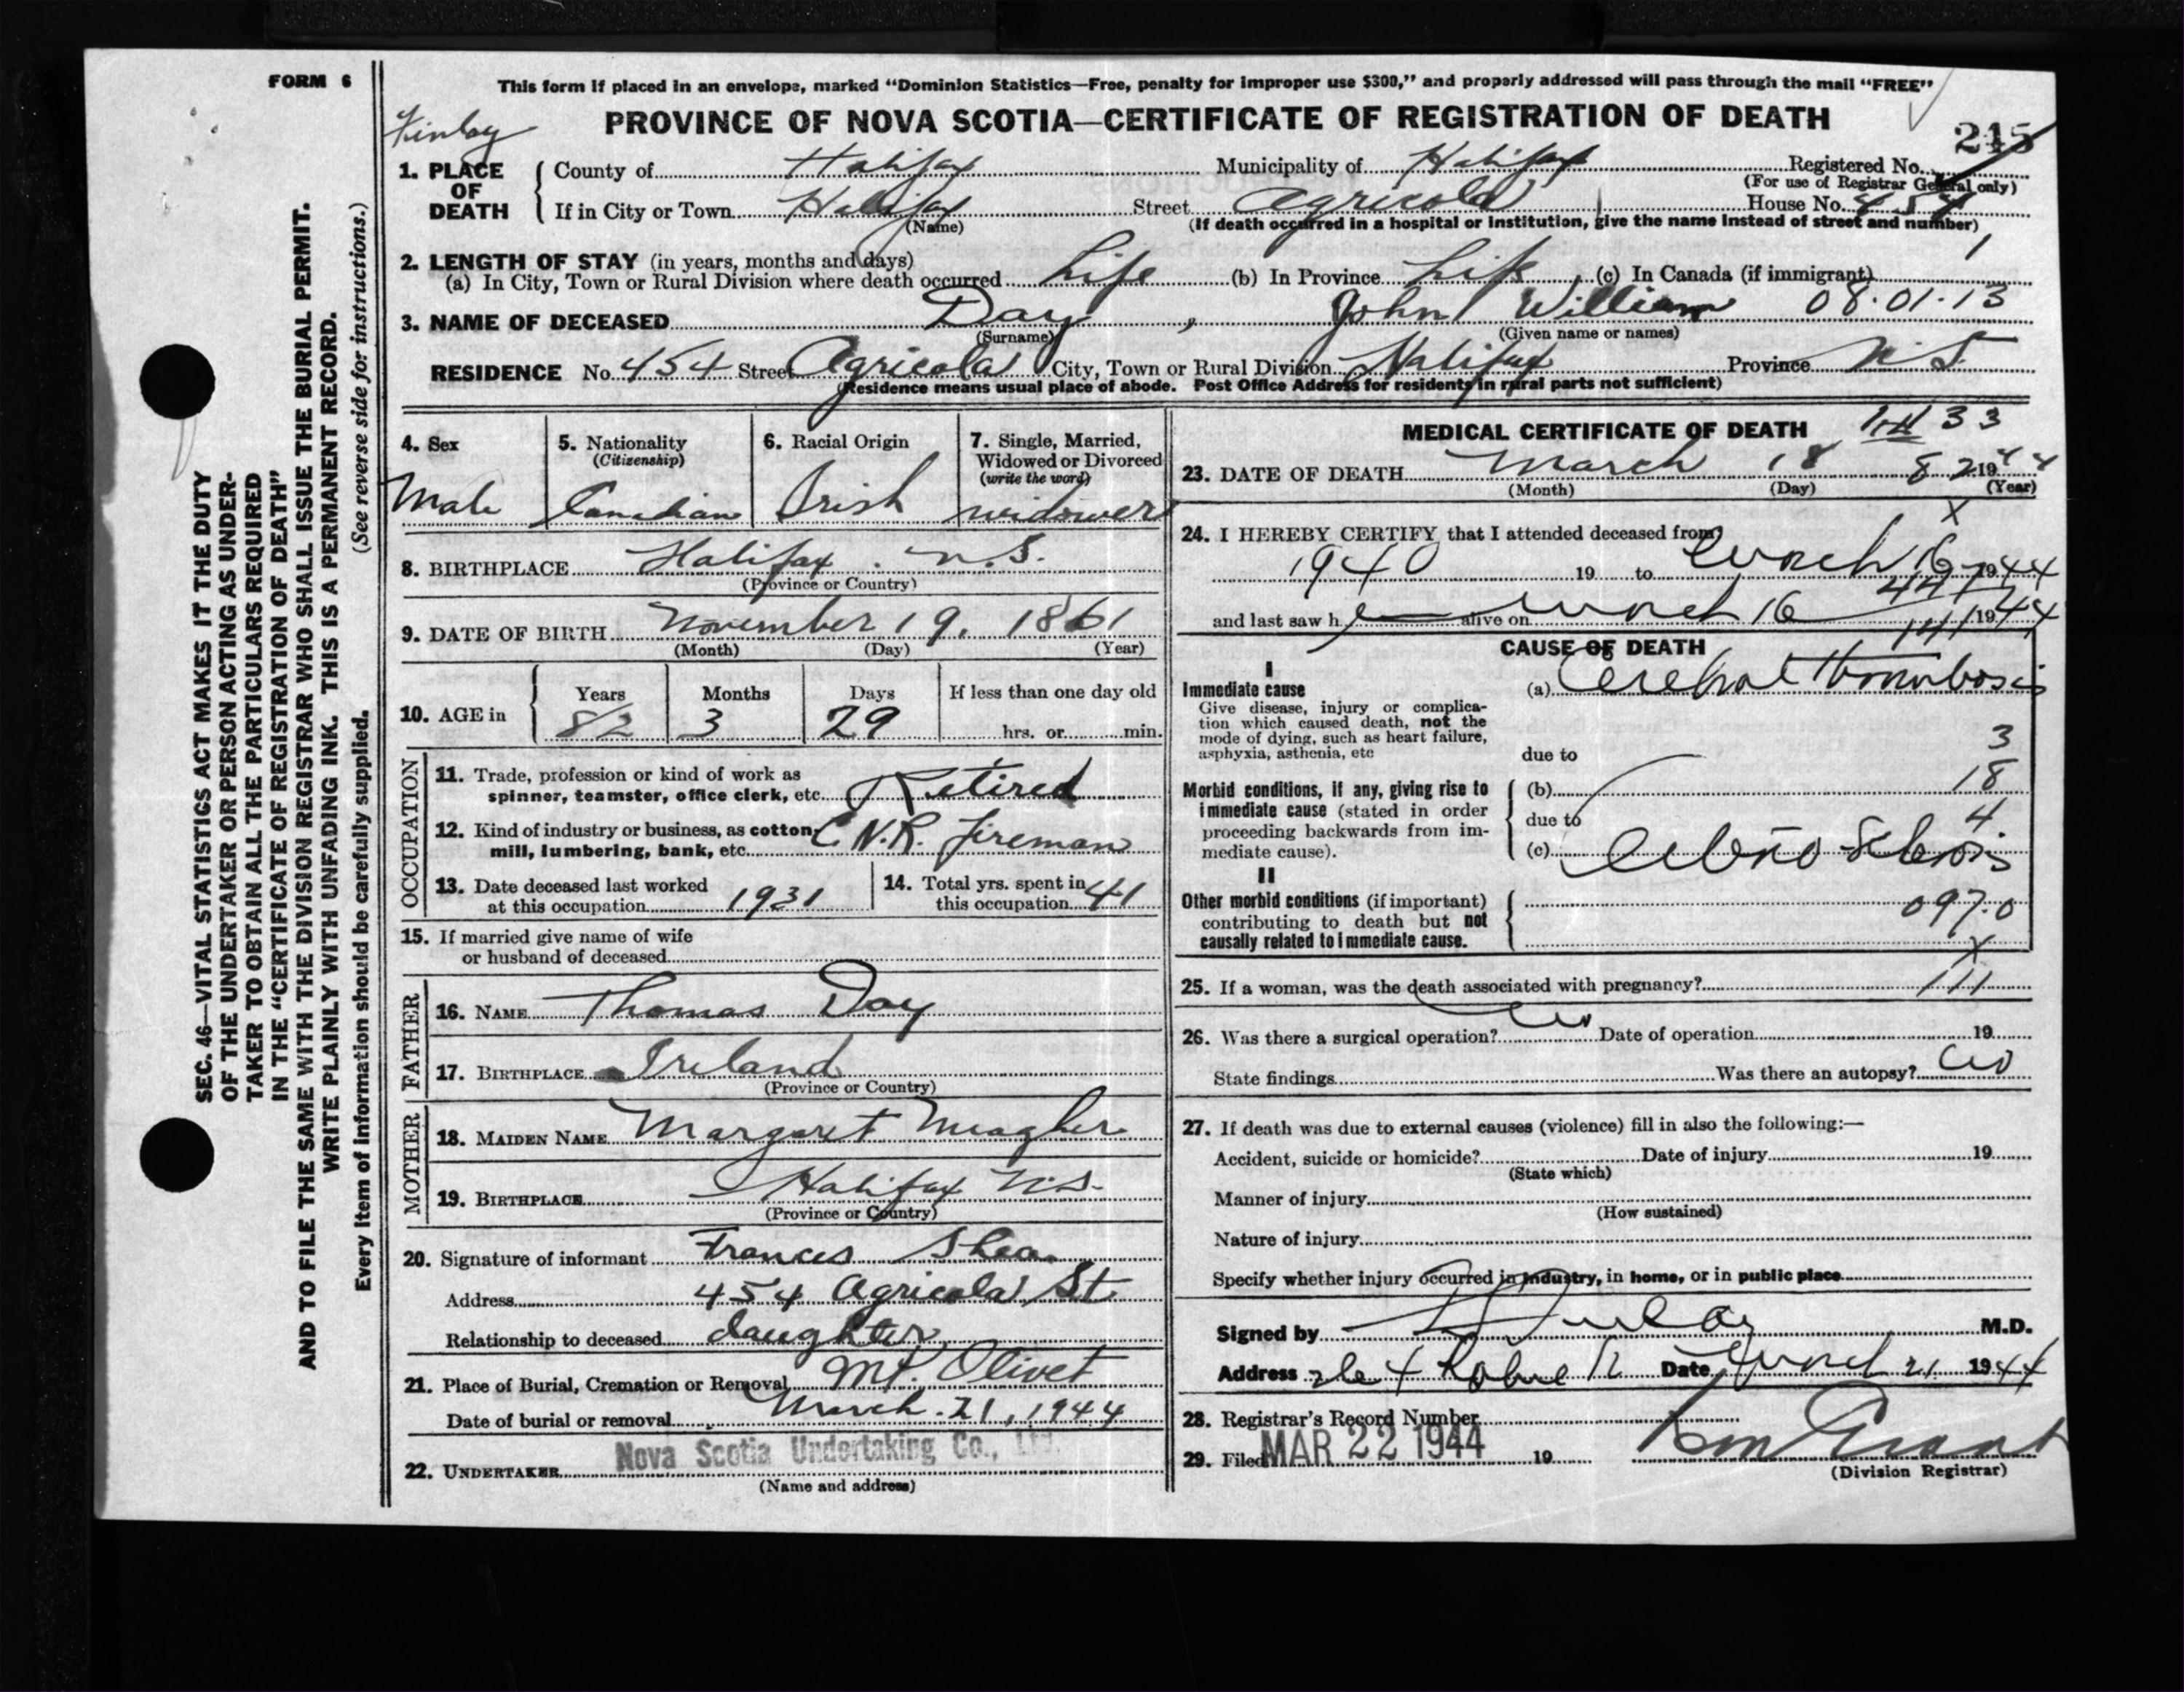 FORM 6
This form if placed in an envelope, marked “Dominion Statistics—Free, penalty for improper use $300,” and properly addressed will pass through the mail “FREE”
Finlay
PROVINCE OF NOVA SCOTIA—CERTIFICATE OF REGISTRATION OF DEATH
245
1. PLACE OF DEATH
County of Halifax Municipality of Halifax Registered No.
(For use of Registrar General only)
If in City or Town Halifax Street Agricola House No. 454
(Name) (If death occurred in a hospital or institution, give the name instead of street and number)
2. LENGTH OF STAY (in years, months and days)
(a) In City, Town or Rural Division where death occurred Life (b) In Province Life (c) In Canada (if immigrant)
3. NAME OF DECEASED Day, John William 08.01.13
(Surname) (Given name or names)
RESIDENCE No. 454 Street Agricola City, Town or Rural Division Halifax Province N.S.
(Residence means usual place of abode. Post Office Address for residents in rural parts not sufficient)
4. Sex
Male
5. Nationality
(Citizenship)
Canadian
6. Racial Origin
Irish
7. Single, Married,
Widowed or Divorced
(write the word)
widower
8. BIRTHPLACE Halifax. N.S.
(Province or Country)
9. DATE OF BIRTH November 19, 1861
(Month) (Day) (Year)
10. AGE in
Years Months Days If less than one day old
82 3 29 hrs. or min.
OCCUPATION
11. Trade, profession or kind of work as
spinner, teamster, office clerk, etc. Retired
12. Kind of industry or business, as cotton
mill, lumbering, bank, etc. C.N.R. fireman
13. Date deceased last worked
at this occupation 1931
14. Total yrs. spent in
this occupation 41
15. If married give name of wife
or husband of deceased
FATHER
16. NAME Thomas Day
17. BIRTHPLACE Ireland
(Province or Country)
MOTHER
18. MAIDEN NAME Margaret Meagher
19. BIRTHPLACE Halifax N.S.
(Province or Country)
20. Signature of informant Frances Shea
Address 454 Agricola St
Relationship to deceased daughter
21. Place of Burial, Cremation or Removal Mt. Olivet
Date of burial or removal March. 21, 1944
22. UNDERTAKER Nova Scotia Undertaking Co., Ltd.
(Name and address)
MEDICAL CERTIFICATE OF DEATH 33
23. DATE OF DEATH March 18 82 1944
(Month) (Day) (Year)
x
24. I HEREBY CERTIFY that I attended deceased from
1940 19 to March 16 1944
and last saw h alive on March 16 1944
CAUSE OF DEATH
I
Immediate cause
Give disease, injury or complica-
tion which caused death, not the
mode of dying, such as heart failure,
asphyxia, asthenia, etc
(a) Cerebral Thrombosis
due to 3
Morbid conditions, if any, giving rise to
immediate cause (stated in order
proceeding backwards from im-
mediate cause).
(b) 18
due to 4
(c) Sclerosis
II
Other morbid conditions (if important)
contributing to death but not
causally related to immediate cause.
097.0
x
25. If a woman, was the death associated with pregnancy? 111
26. Was there a surgical operation? No Date of operation 19
State findings Was there an autopsy? No
27. If death was due to external causes (violence) fill in also the following:—
Accident, suicide or homicide? Date of injury 19
(State which)
Manner of injury
(How sustained)
Nature of injury
Specify whether injury occurred in industry, in home, or in public place
Signed by Finlay M.D.
Address Date March 21 1944
28. Registrar's Record Number
29. Filed MAR 22 1944 19
(Division Registrar)
SEC. 46—VITAL STATISTICS ACT MAKES IT THE DUTY
OF THE UNDERTAKER OR PERSON ACTING AS UNDER-
TAKER TO OBTAIN ALL THE PARTICULARS REQUIRED
IN THE “CERTIFICATE OF REGISTRATION OF DEATH”
AND TO FILE THE SAME WITH THE DIVISION REGISTRAR WHO SHALL ISSUE THE BURIAL PERMIT.
WRITE PLAINLY WITH UNFADING INK. THIS IS A PERMANENT RECORD.
Every item of information should be carefully supplied. (See reverse side for instructions.)